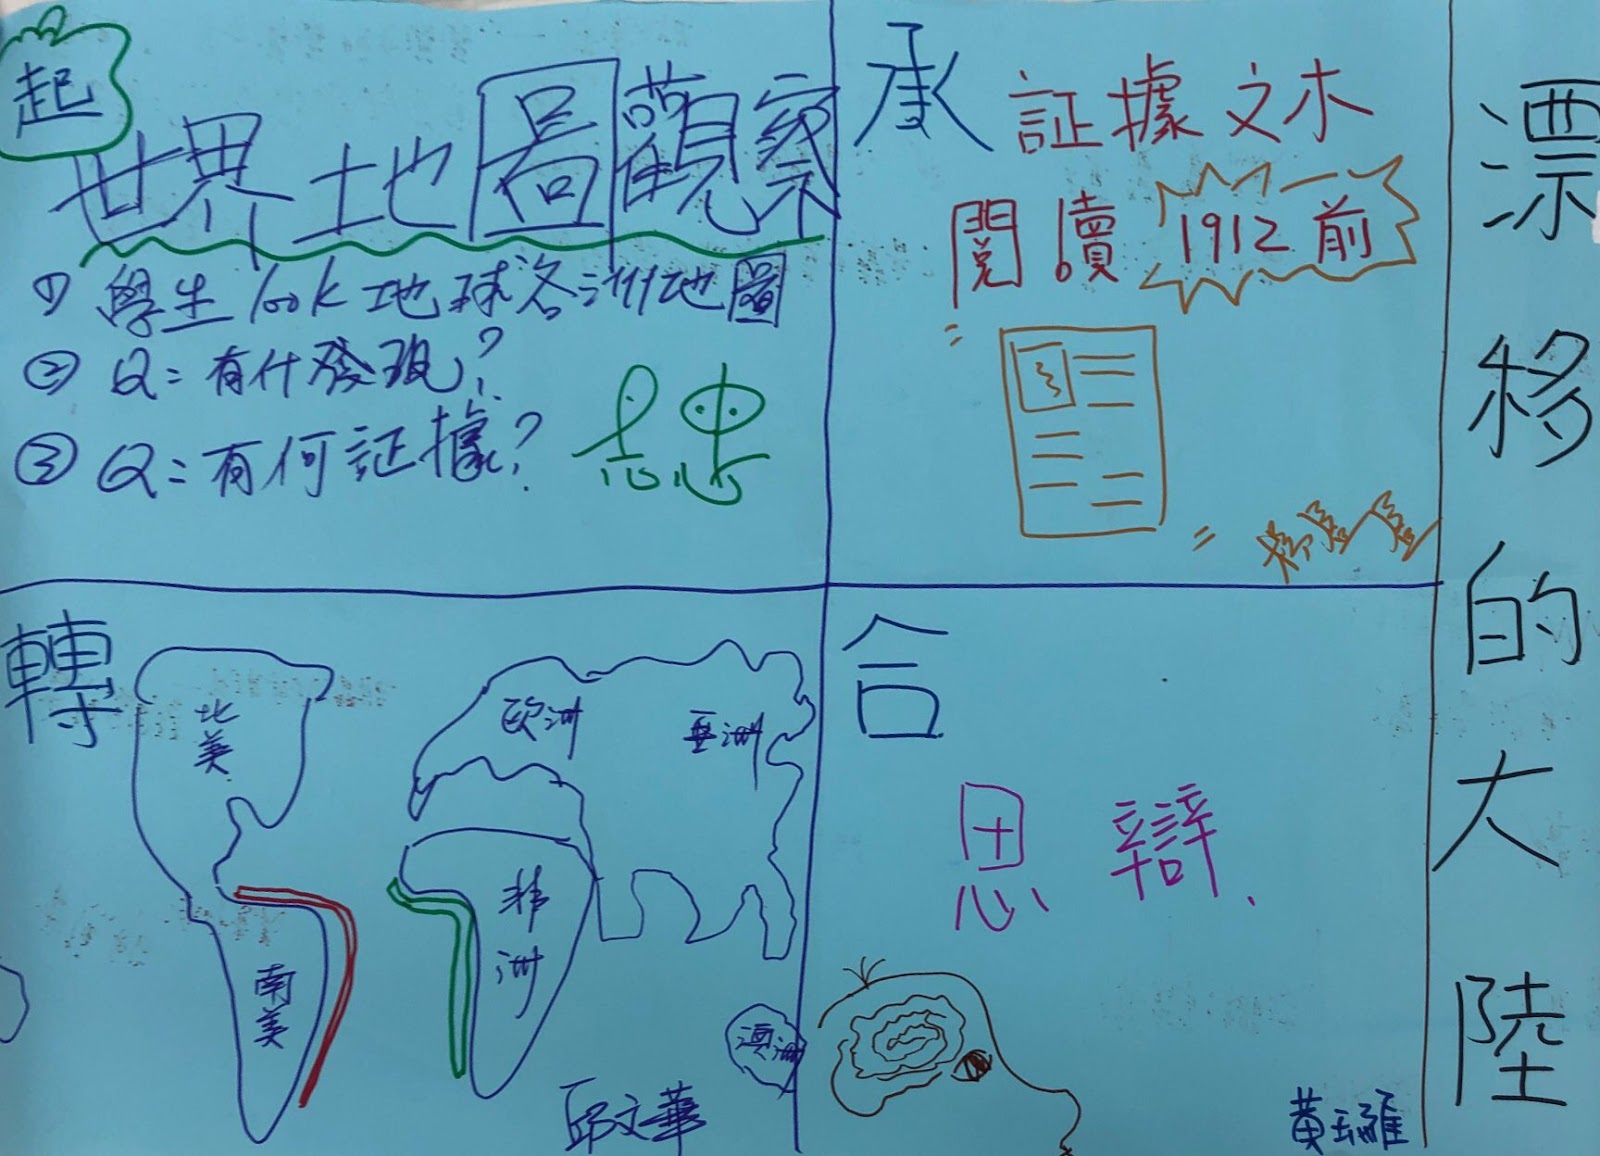 漂移的大陸
起
世界地圖觀察
① 學生look地球各洲地圖
② Q:有什發現?
③ Q:有何証據?
承
証據文本
閱讀 1912前
轉
北美
南美
歐洲
亞洲
非洲
澳洲
邱文華
合
思辯